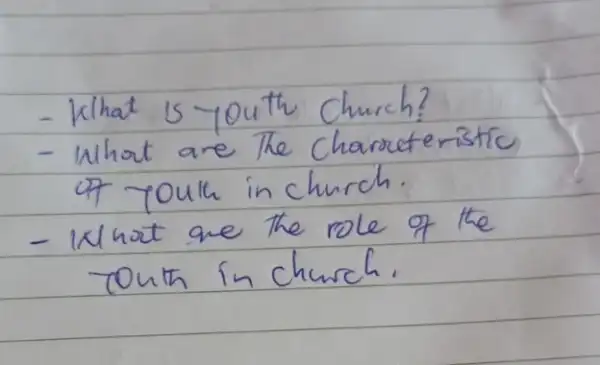 - What is youth church?
- What are The Characteristic
of youth in church.
- What are The role of the
youth in church.